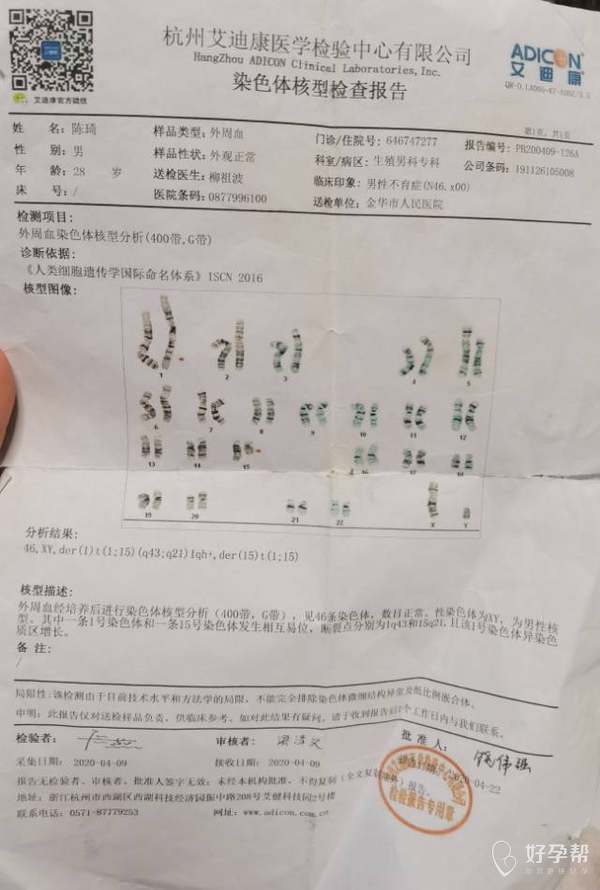 杭州艾迪康医学检验中心有限公司
HangZhou ADICON Clinical Laboratories,Inc.
染色体核型检查报告
ADICON®
艾迪康
艾迪康官方微信
第1页,共1页
姓 名：陈琦 样品类型：外周血 门诊/住院号：646747277 报告编号：PB200409-126A
性 别：男 样品性状：外观正常 科室/病区：生殖男科专科 公司条码：191126105008
年 龄：28 岁 送检医生：柳祖波 临床印象：男性不育症(N46.x00)
床 号：/ 医院条码：0877996100 送检单位：金华市人民医院
检测项目：
外周血染色体核型分析(400带,G带)
诊断依据：
《人类细胞遗传学国际命名体系》ISCN 2016
核型图像：
1 2 3 4 5
6 7 8 9 10 11 12
13 14 15 16 17 18
19 20 21 22 X Y
分析结果：
46,XY,der(1)t(1;15)(q43;q21)1qh+,der(15)t(1;15)
核型描述：
外周血经培养后进行染色体核型分析（400带，G带），见46条染色体，数目正常。性染色体为XY，为男性核
型。其中一条1号染色体和一条15号染色体发生相互易位，断裂点分别为1q43和15q21,且该1号染色体异染色
质区增长。
备 注：
/
局限性：该检测由于目前技术水平和方法学的局限，不能完全排除染色体微细结构异常及低比例嵌合体。
申明：此报告仅对送检样品负责，供临床参考。如对此结果有疑问，请于收到报告后7个工作日内与我们联系。
检验者： 审核者： 批准人：
采集日期：2020-04-09 接收日期：2020-04-09 2020-04-22
报告无检验者、审核者、批准人签字无效；未经本机构批准，不得复制（全文复制除外）报告。
地址：浙江杭州市西湖区西湖科技经济园振中路208号艾健科技园2号楼
联系电话：0571-87779253 网址：www.adicon.com.cn
检验报告专用章
好孕帮